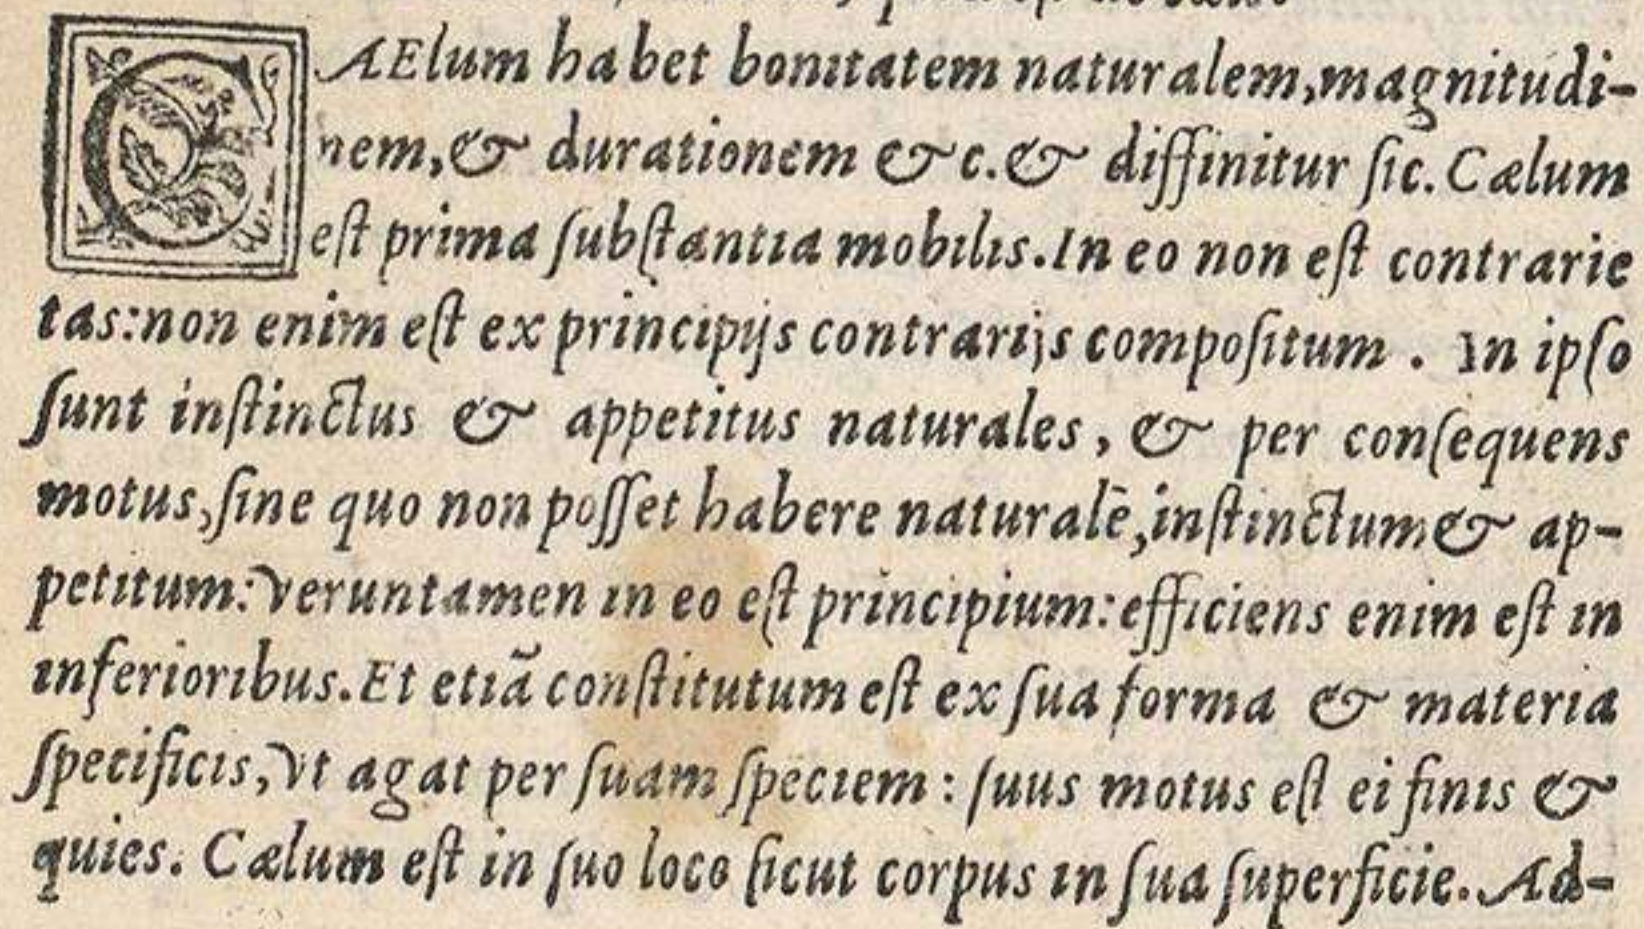 CAElum habet bonitatem naturalem,magnitudi-
nem,& durationem &c.& diffinitur ſic. Cælum
eſt prima ſubſtantia mobilis.In eo non eſt contrarie
tas:non enim eſt ex principijs contrarijs compoſitum . In ipſo
ſunt inſtinctus & appetitus naturales, & per conſequens
motus,ſine quo non poſſet habere naturalē,inſtinctum& ap-
petitum:veruntamen in eo eſt principium:efficiens enim eſt in
inferioribus.Et etiā conſtitutum eſt ex ſua forma & materia
ſpecificis,vt agat per ſuam ſpeciem: ſuus motus eſt ei finis &
quies. Cælum eſt in ſuo loco ſicut corpus in ſua ſuperficie. Ad-